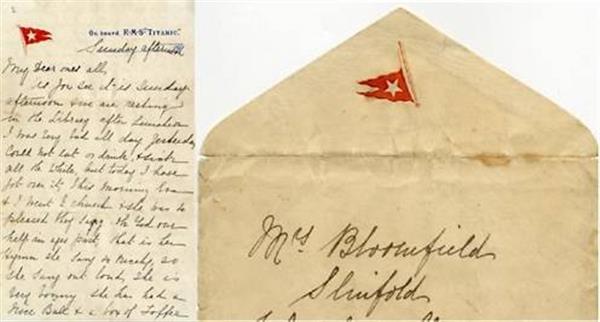 On board R.M.S. "TITANIC."
Sunday afternoon
My Dear ones all,
As you see it is Sunday
afternoon & we are resting
in the library after luncheon
I was very bad all day yesterday
could not eat or drink, & sick
all the while, but today I have
got over it, This morning Eva
& I went to church & she was so
pleased they sang Oh God our
help in ages past, that is her
Hymn she sang so nicely, so
she sang out loud, She is
very bonny she has had a
nice Ball & a box of Toffee
Mrs Bloomfield
Slinfold